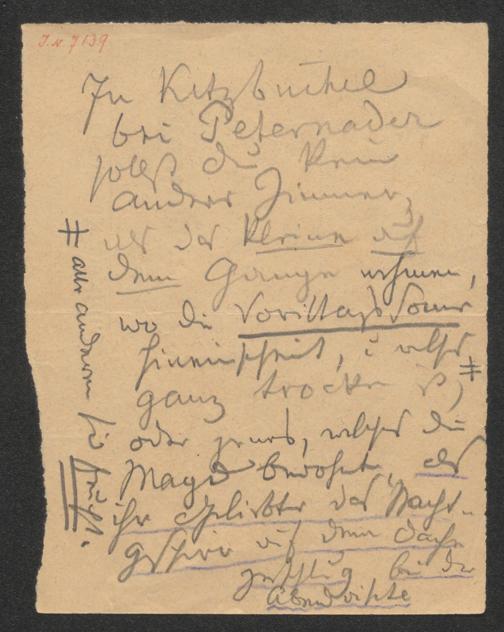 I.N. 7139
In Kitzbühel
bei Peternader
sollst du kein
anderes Zimmer,
als das kleine auf
dem Gange nehmen,
wo die Vormittags Sonne
hineinscheint, u welches
ganz trocken ist, ⧧
oder jenes, welches die
Magd bewohnt, als
ihr Geliebter das Nacht-
geschirr auf dem Dache
bei der
⧧ alle anderen sind feucht.